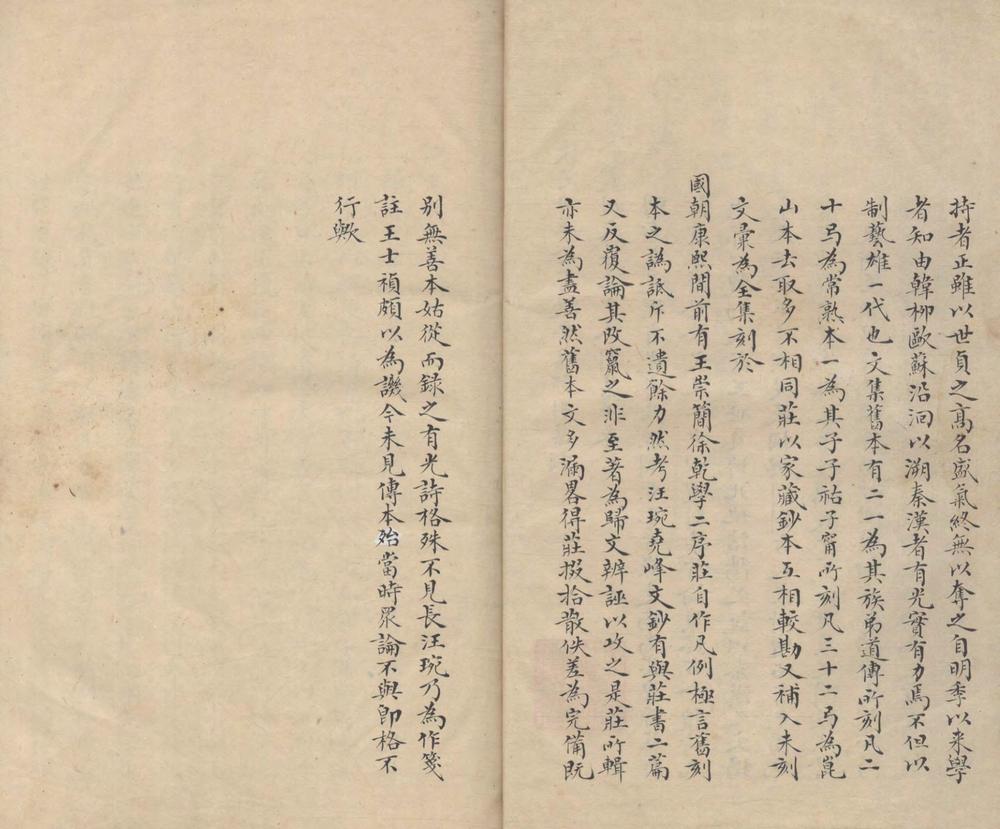 持者正雖以世貞之髙名盛氣終無以奪之自明季以来學
者知由韓栁歐蘇沿洄以溯秦漢者有光實有力焉不但以
制藝雄一代也文集舊本有二一為其族弟道傳所刻凡二
十㢧為常熟本一為其子子祜子甯所刻凡三十二㢧為崑
山本去取多不相同莊以家藏鈔本互相較勘又補入未刻
文彚為全集刻於
國朝康熙間前有王崇簡徐乾學二序莊自作凡例極言舊刻
本之譌詆斥不遺餘力然考汪琬堯峰文鈔有與莊書二篇
又反覆論其改竄之非至著為歸文辨誣以攻之是莊所輯
亦未為盡善然舊本文多漏畧得莊掇拾散佚差為完備既
别無善本姑從而録之有光詩格殊不見長汪琬乃為作箋
註王士禎頗以為譏今未見傳本殆當時衆論不與即格不
行歟